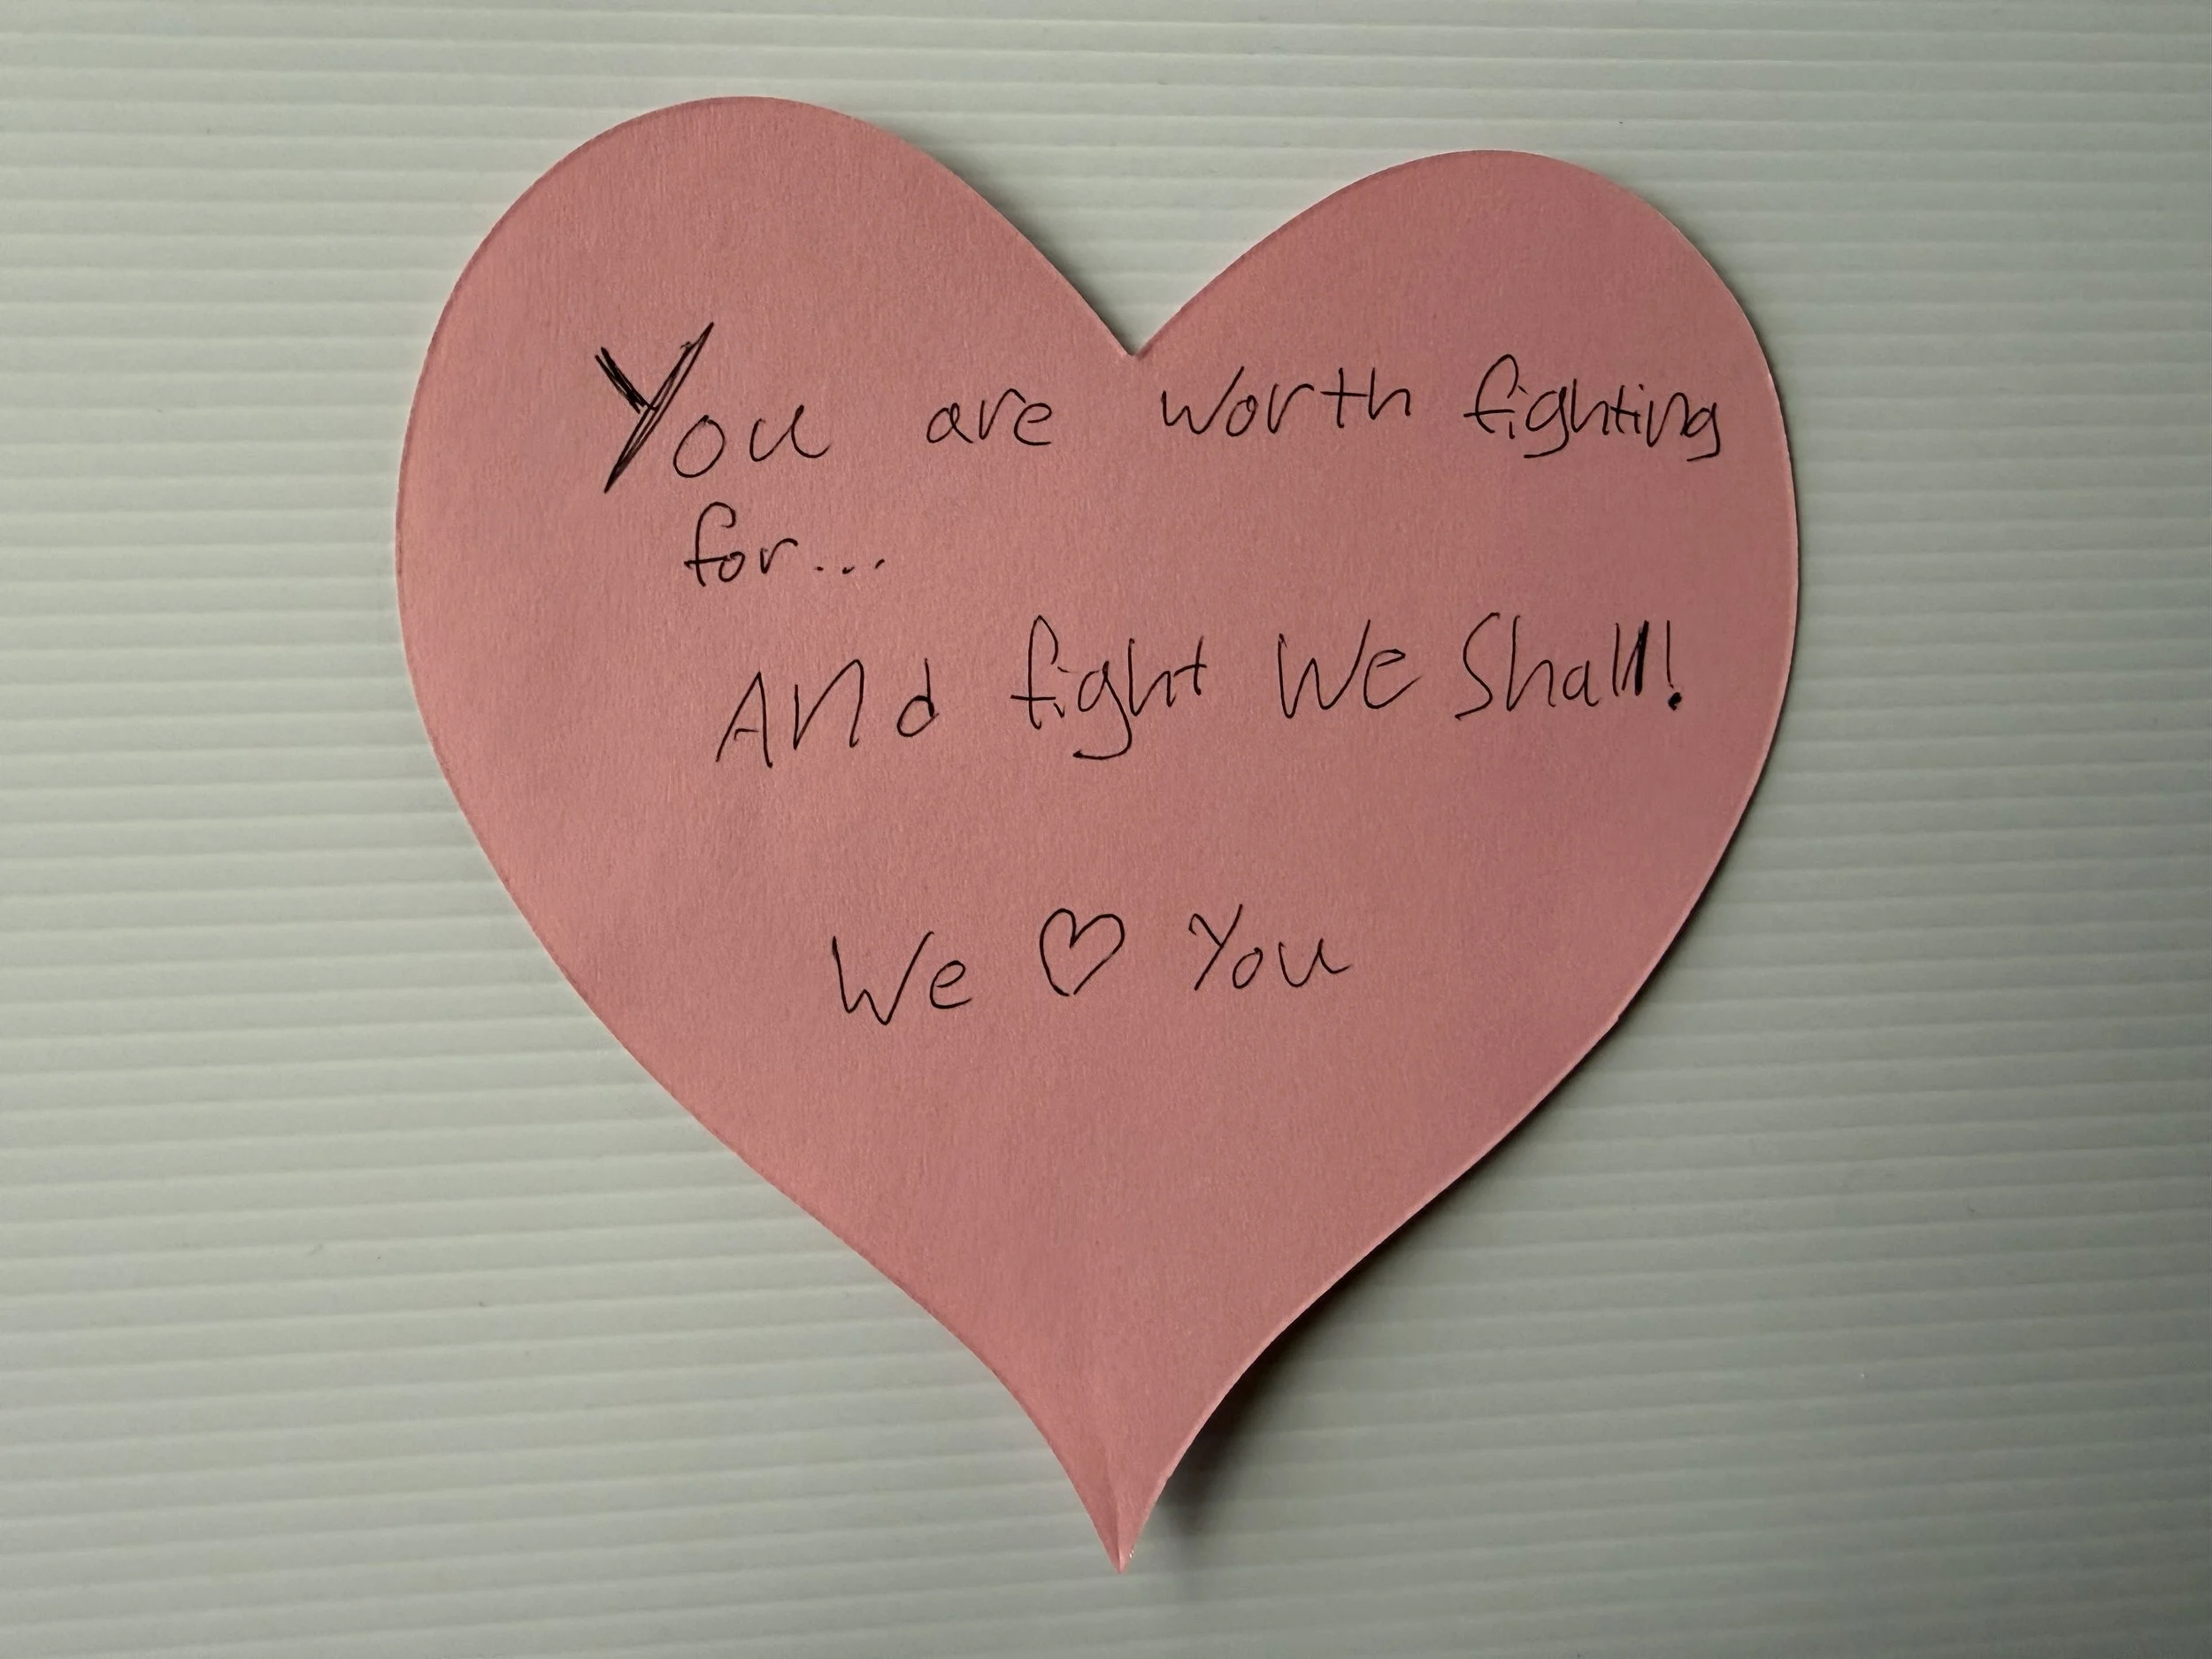 You are worth fighting
for...
And fight We Shall!
We ♡ You